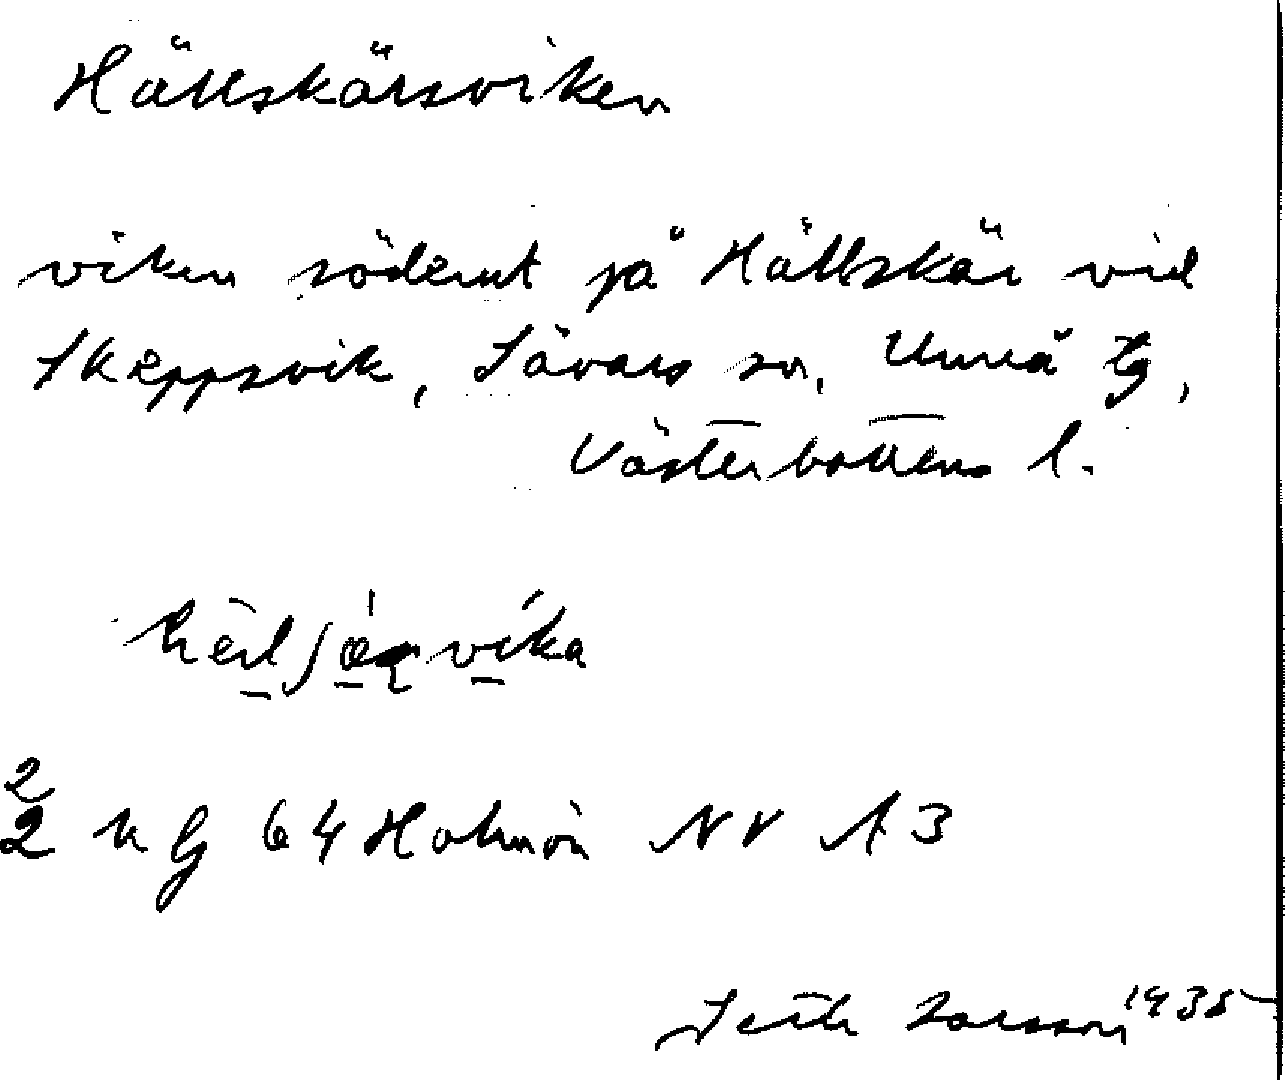 Hällskärsviken
viken söderut på Hällskär vid
Skeppsvik, Sävars sn, Umeå tg,
Västerbottens l.
2
2 kg 64 Holmön NV A3
Seth Larsson 1935